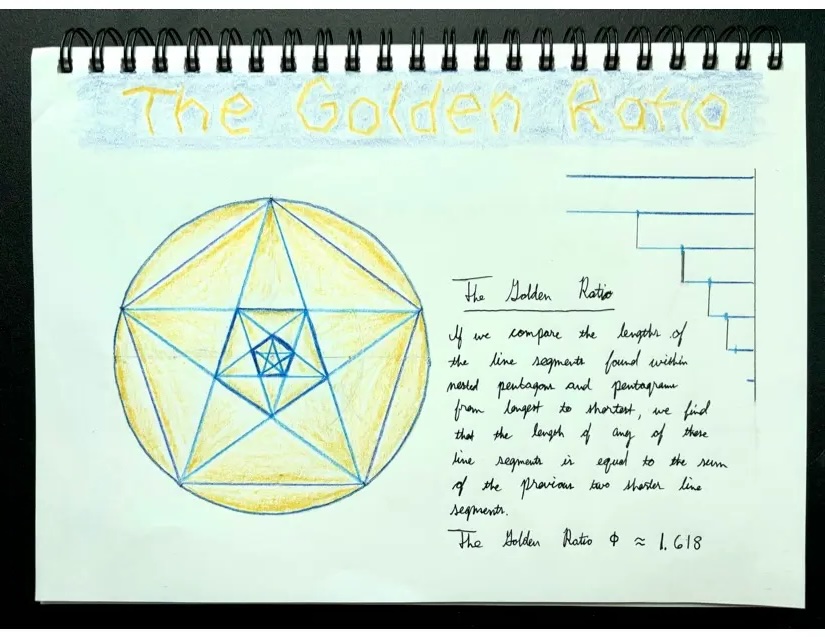 The Golden Ratio
The Golden Ratio
If we compare the lengths of
the line segments found within
nested pentagons and pentagrams
from longest to shortest, we find
that the length of any of these
line segments is equal to the sum
of the previous two shorter line
segments.
The Golden Ratio Φ ≈ 1.618